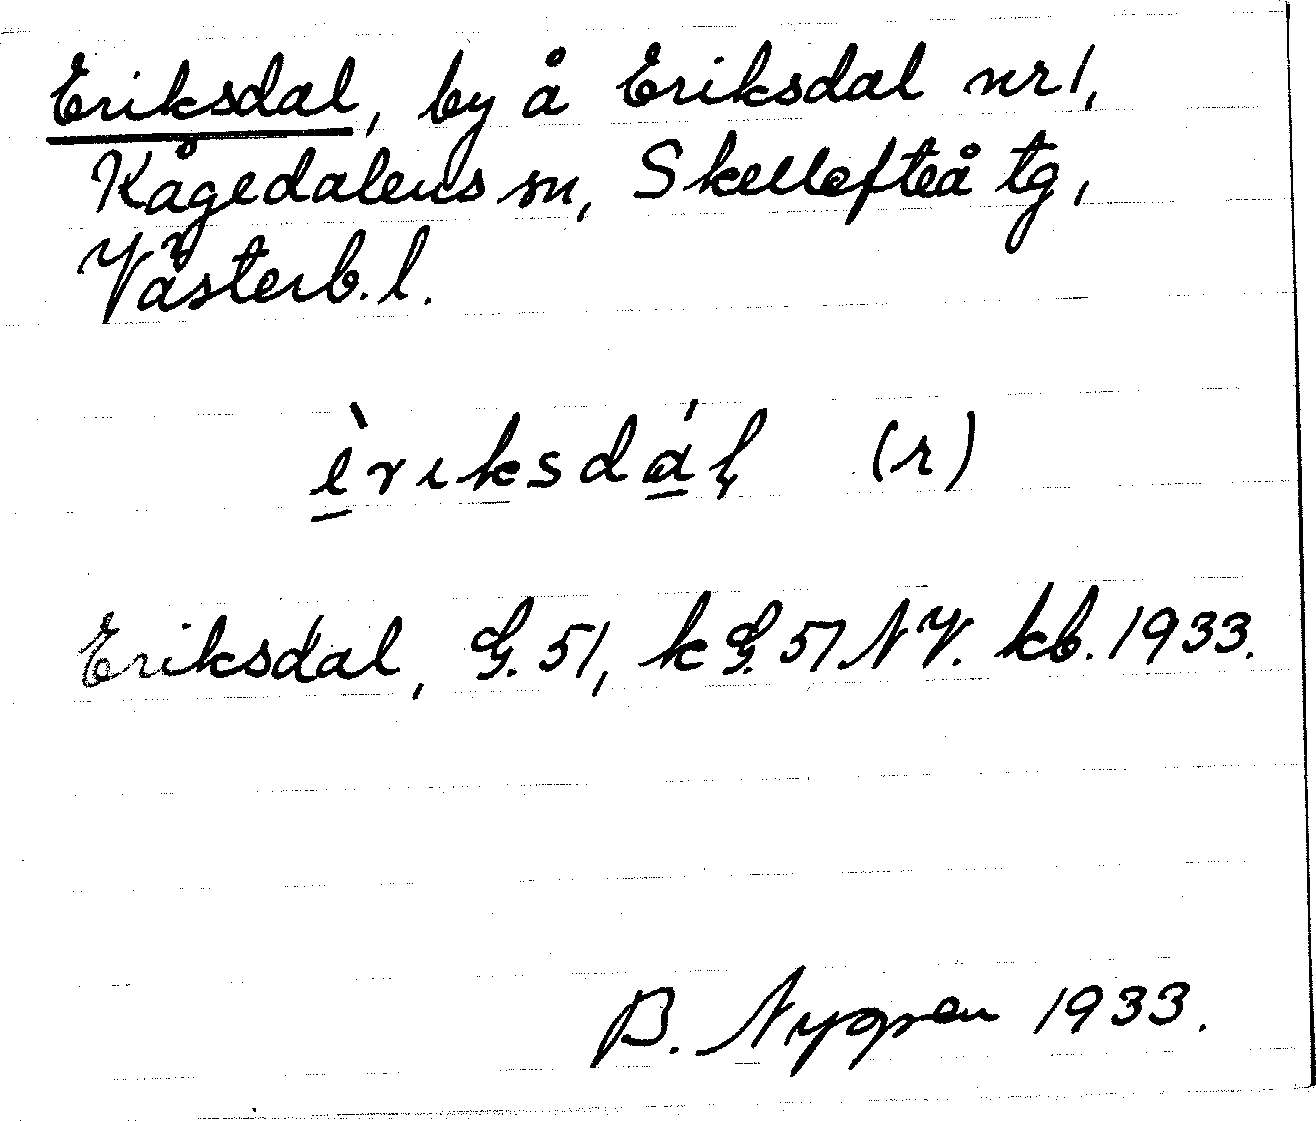 Eriksdal, by å Eriksdal nr 1,
Kågedalens sn, Skellefteå tg,
Västerb. l.
è̱rıksdá̱ḷ (r)
Eriksdal, G. 51, k G. 51 NV. kb. 1933.
B. Nygren 1933.